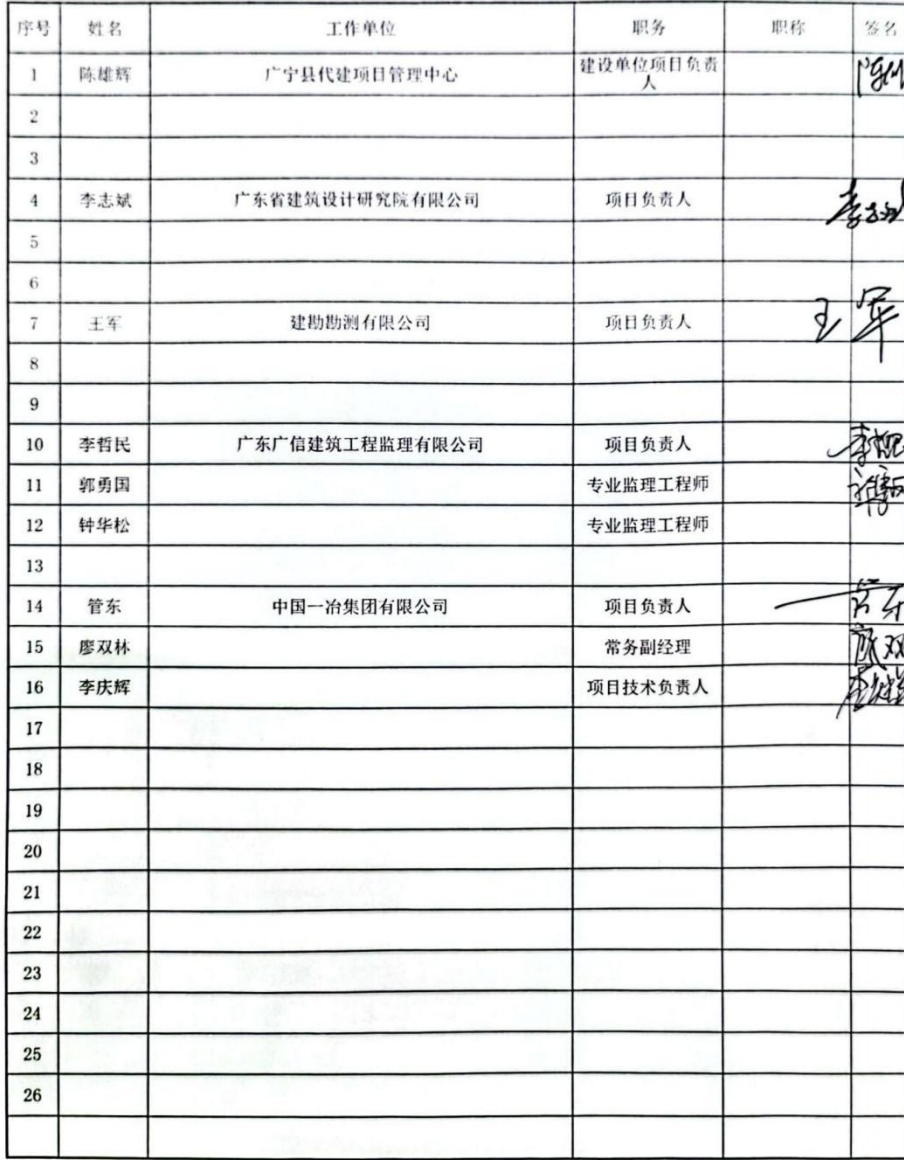 序号 姓名 工作单位 职务 职称 签名
1 陈雄辉 广宁县代建项目管理中心 建设单位项目负责
人
2
3
4 李志斌 广东省建筑设计研究院有限公司 项目负责人
5
6
7 王军 建勘勘测有限公司 项目负责人 王军
8
9
10 李哲民 广东广信建筑工程监理有限公司 项目负责人
11 郭勇国 专业监理工程师
12 钟华松 专业监理工程师
13
14 管东 中国一冶集团有限公司 项目负责人
15 廖双林 常务副经理
16 李庆辉 项目技术负责人
17
18
19
20
21
22
23
24
25
26